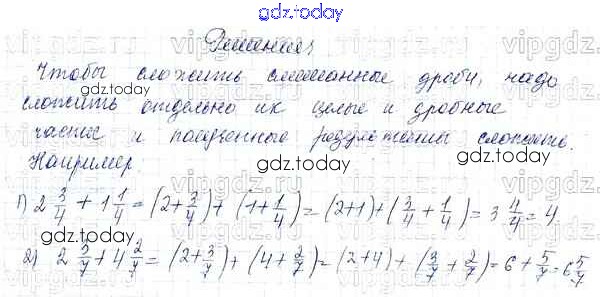 gdz.today
Решение
Чтобы сложить смешанные дроби, надо
gdz.today
сложить отдельно их целые и дробные
части и полученные результаты сложить.
gdz.today gdz.today
Например
1) 2 3/4 + 1 1/4 = (2+3/4) + (1+1/4) = (2+1)+(3/4+1/4) = 3 4/4 = 4
2) 2 3/7 + 4 2/7 = (2+3/7) + (4+2/7) = (2+4) + (3/7+2/7) = 6 + 5/7 = 6 5/7
gdz.today gdz.today